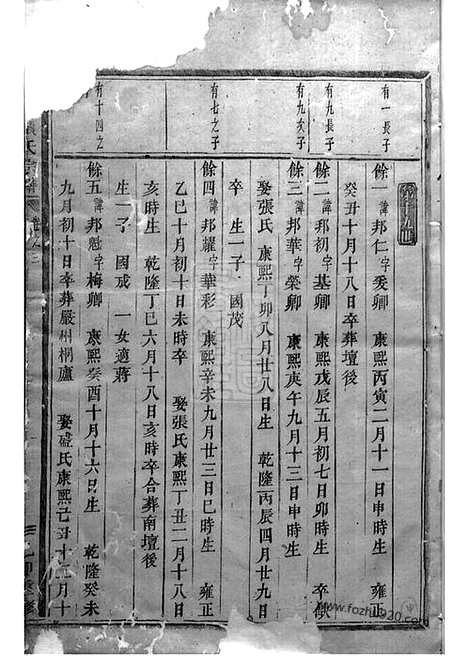 有一長子
餘一諱邦仁字爰卿 康熙丙寅二月十一日申時生 雍正
癸丑十月十八日卒葬壇後
有九長子
餘二諱邦初字基卿 康熙戊辰五月初七日卯時生 卒歿
有九次子
餘三諱邦華字榮卿 康熙庚午九月十三日申時生
娶張氏 康熙丁卯八月廿八日生 乾隆丙辰四月廿九日
卒 生一子 國茂
有七之子
餘四諱邦耀字華彩 康熙辛未九月廿三日巳時生 雍正
乙巳十月初十日未時卒 娶張氏康熙丁丑二月十八日
亥時生 乾隆丁巳六月十八日亥時卒合葬南壇後
生一子 國成 一女適蔣
有十四之
餘五諱邦魁字梅卿 康熙癸酉十月十六日生 乾隆癸未
九月初十日卒葬嚴州桐廬 娶盛氏康熙己丑十二月十
氏宗譜
www.fozhu920.com